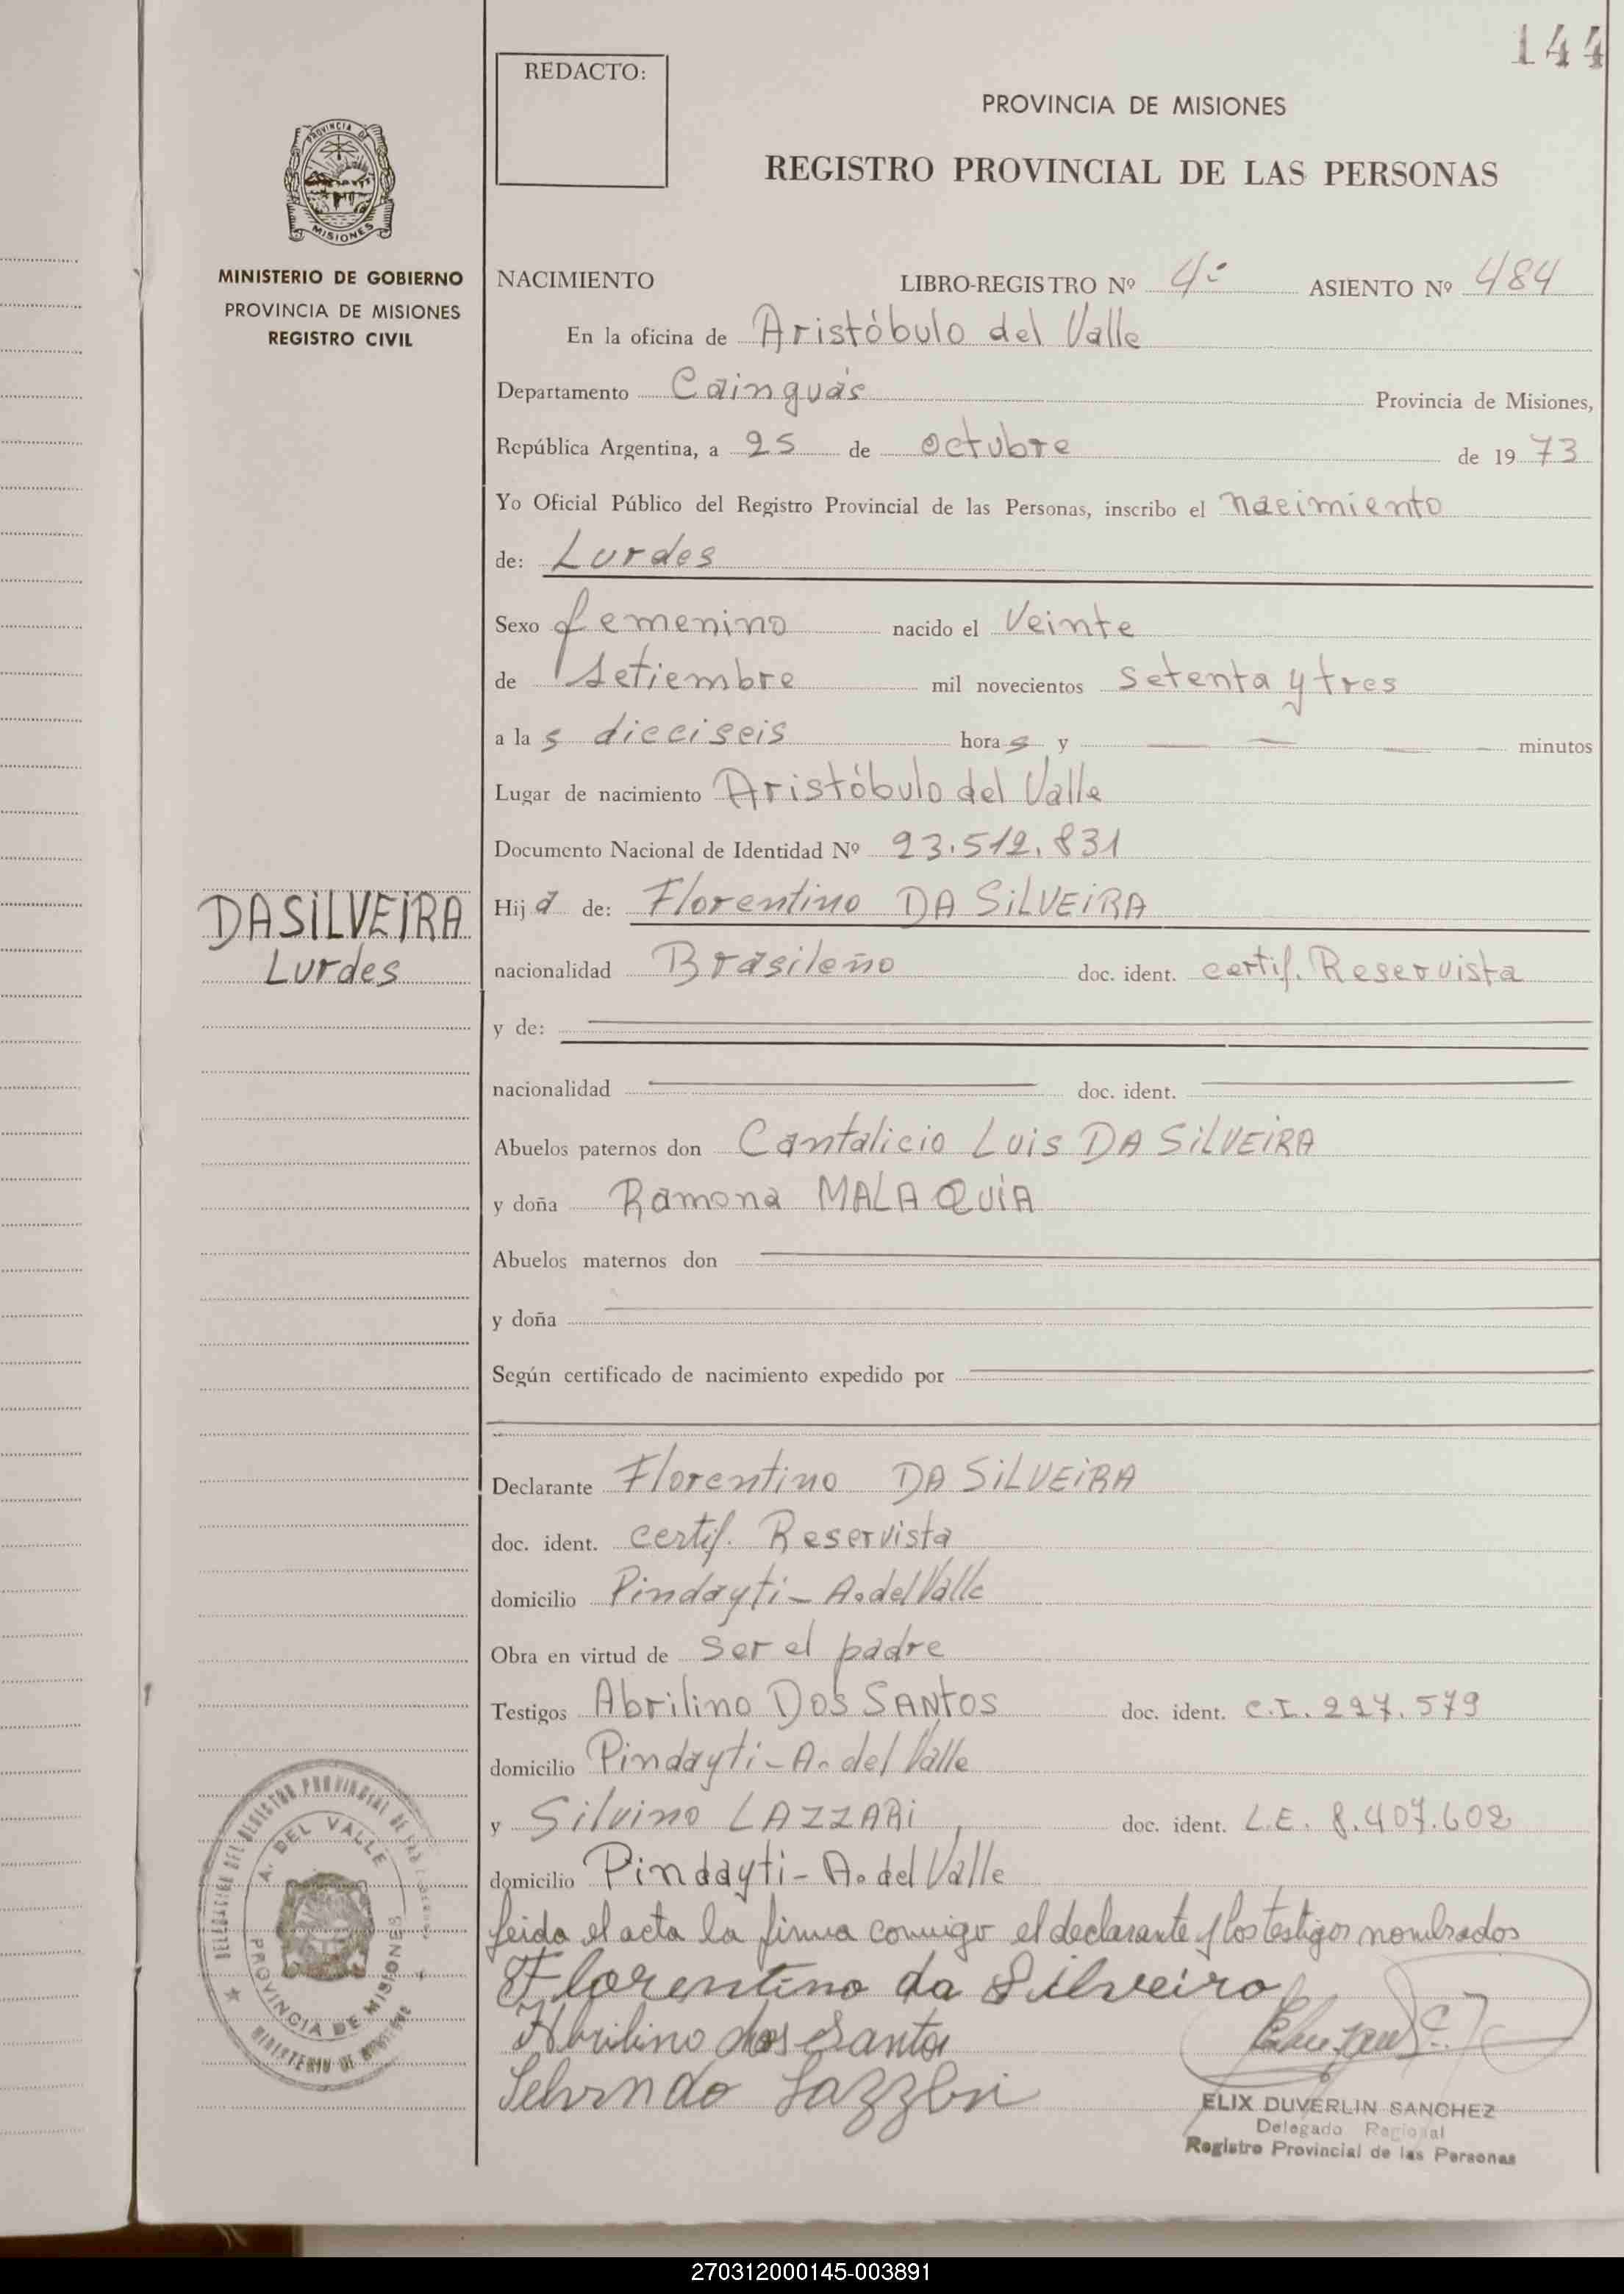 144
REDACTO:
PROVINCIA DE MISIONES
REGISTRO PROVINCIAL DE LAS PERSONAS
PROVINCIA DE
MISIONES
MINISTERIO DE GOBIERNO
PROVINCIA DE MISIONES
REGISTRO CIVIL
NACIMIENTO LIBRO-REGISTRO Nº 4º ASIENTO Nº 484
En la oficina de Aristóbulo del Valle
Departamento Cainguás Provincia de Misiones,
República Argentina, a 25 de octubre de 1973
Yo Oficial Público del Registro Provincial de las Personas, inscribo el nacimiento
de: Lurdes
Sexo femenino nacido el Veinte
de setiembre mil novecientos setenta y tres
a las dieciseis horas y minutos
Lugar de nacimiento Aristóbulo del Valle
Documento Nacional de Identidad Nº 23.512.831
DA SILVEIRA
Lurdes
Hija de: Florentino DA SILVEIRA
nacionalidad Brasileño doc. ident. certif. Reservista
y de:
nacionalidad doc. ident.
Abuelos paternos don Cantalicio Luis DA SILVEIRA
y doña Ramona MALAQUIA
Abuelos maternos don
y doña
Según certificado de nacimiento expedido por
Declarante Florentino DA SILVEIRA
doc. ident. certif. Reservista
domicilio Pindayti - A. del Valle
Obra en virtud de ser el padre
Testigos Abrilino DOS SANTOS doc. ident. C.I. 227.579
domicilio Pindayti - A. del Valle
y Silvino LAZZARI, doc. ident. L.E. 8.407.602
domicilio Pindayti - A. del Valle
leida el acta la firma conmigo el declarante y los testigos nombrados
Florentino da Silveiro
Abrilino dos Santos
DELEGACION DEL REGISTRO PROVINCIAL DE LAS
A. DEL VALLE
PROVINCIA DE MISIONES
MINISTERIO DE
ELIX DUVERLIN SANCHEZ
Delegado Regional
Registro Provincial de las Personas
270312000145-003891